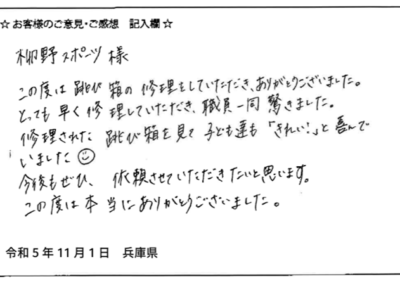 ☆ お客様のご意見・ご感想　記入欄 ☆
柳野スポーツ 様
この度は 跳び箱の修理をしていただき、ありがとうございました。
とっても早く修理していただき、職員一同 驚きました。
修理された 跳び箱を見て 子ども達も「きれい！」と喜んで
いました☺
今後もぜひ、依頼させていただきたいと思います。
この度は本当にありがとうございました。
令和5年11月1日　兵庫県